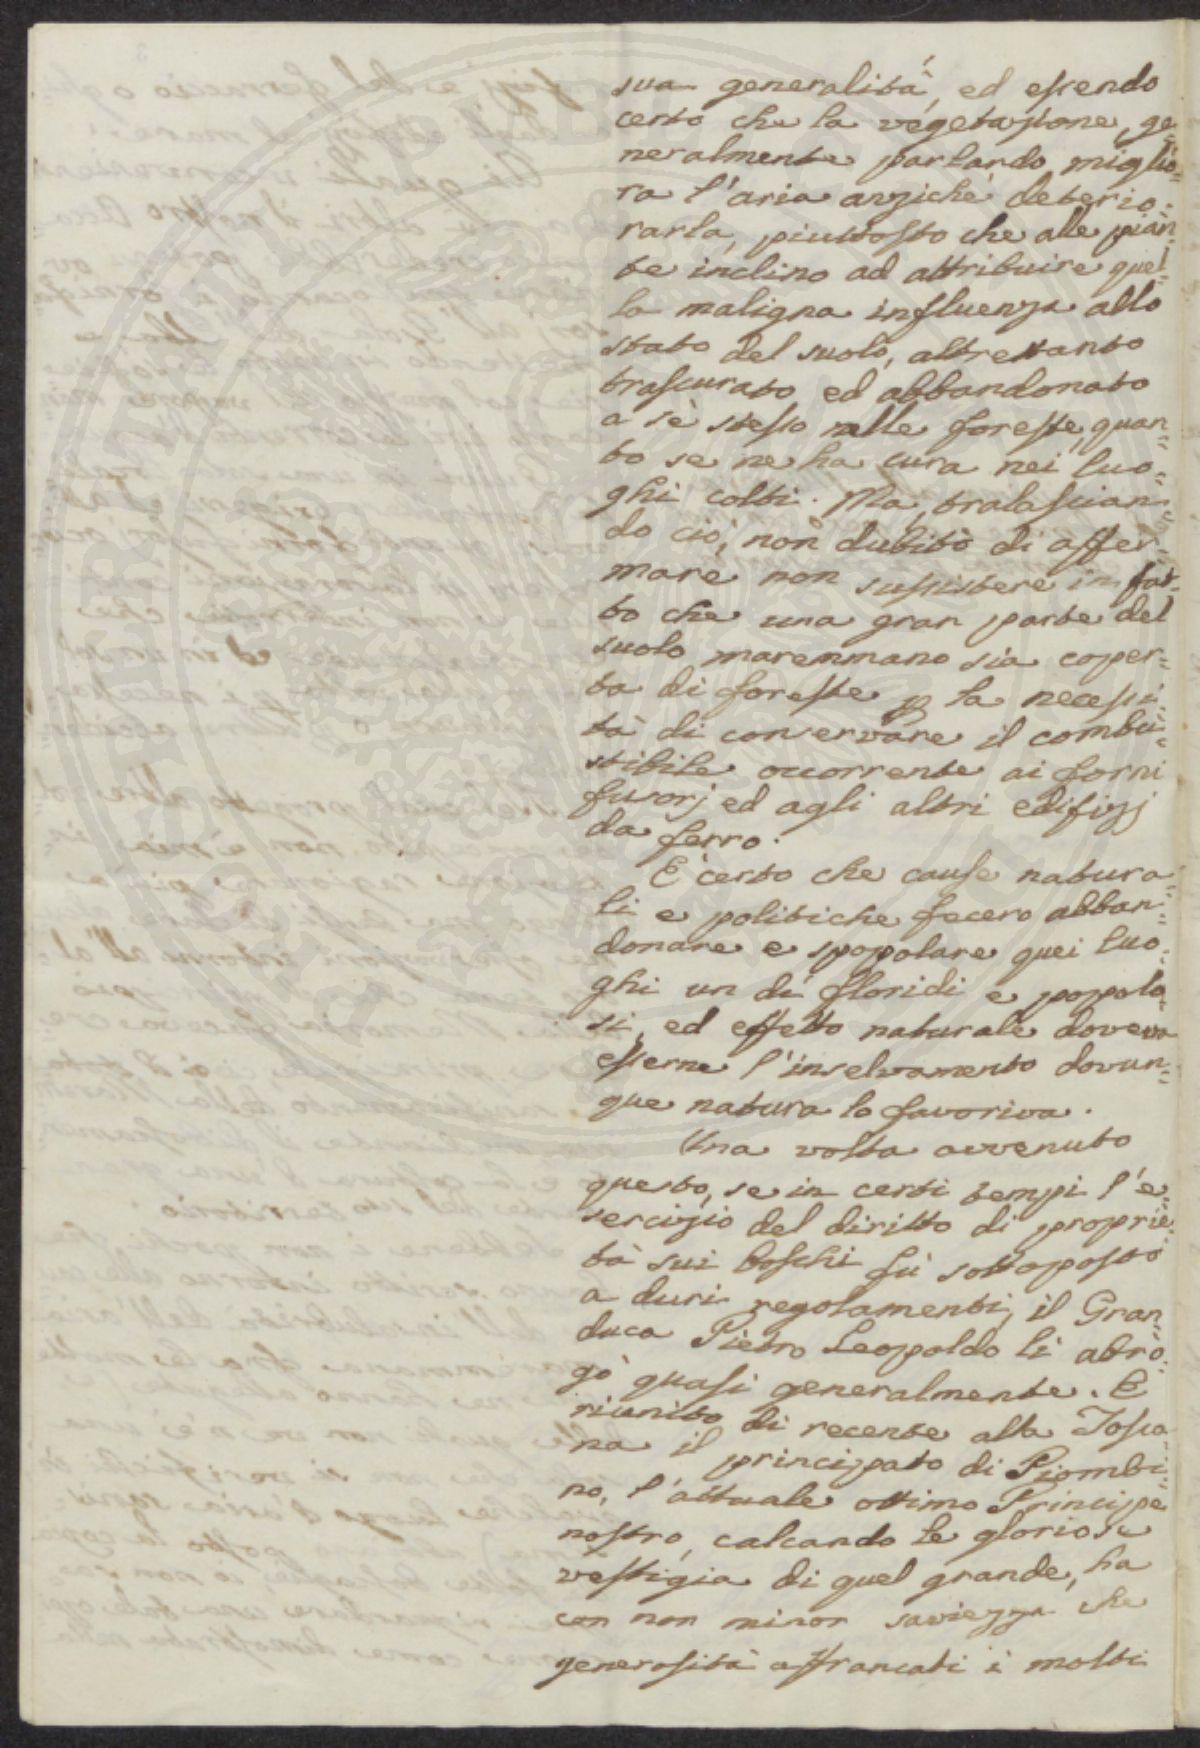 sua generalità, ed essendo
certo che la vegetazione, ge=
neralmente parlando, miglio=
ra l'aria anziché deterio=
rarla, piuttosto che alle pian=
te inclino ad attribuire quel=
la maligna influenza allo
stato del suolo, altrettanto
trascurato ed abbandonato
a sè stesso nelle foreste, quan=
to se ne ha cura nei luo=
ghi colti. Ma, tralascian=
do ciò, non dubito di affer=
mare non sussistere in fat=
to che una gran parte del
suolo maremmano sia coper=
ta di foreste p la necessi=
tà di conservare il combu=
stibile occorrente ai forni
fusorj ed agli altri edifizj
da ferro.
E' certo che cause natura=
li e politiche fecero abban=
donare e spopolare quei luo=
ghi un dì floridi e popolo=
si, ed effetto naturale doveva
esserne l'inselvamento dovun=
que natura lo favoriva.
Una volta avvenuto
questo, se in certi tempi l'e=
sercizio del diritto di proprie=
tà sui boschi fù sottoposto
a duri regolamenti, il Gran=
duca Pietro Leopoldo li abro=
gò quasi generalmente. E
riunito di recente alla Tosca=
na il principato di Piombi=
no, l'attuale ottimo Principe
nostro, calcando le gloriose
vestigia di quel grande, ha
con non minor saviezza che
generosità affrancati i molti